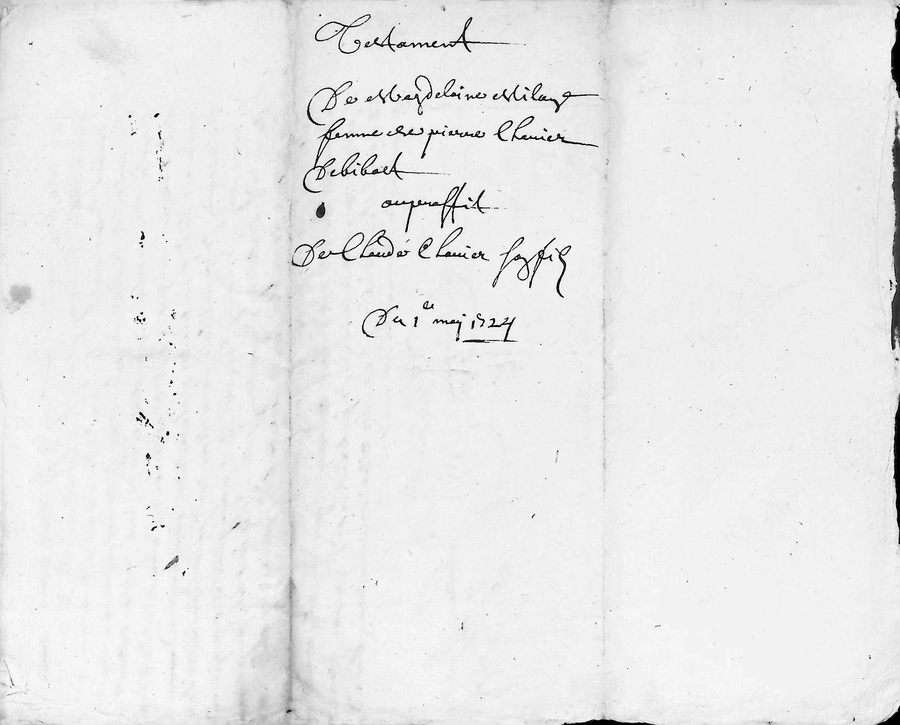 Testament
De Magdelaine Milang
femme de pierre Chenier
De
auproffit
De Claude Chenier Son fils
Du 1er may 1724